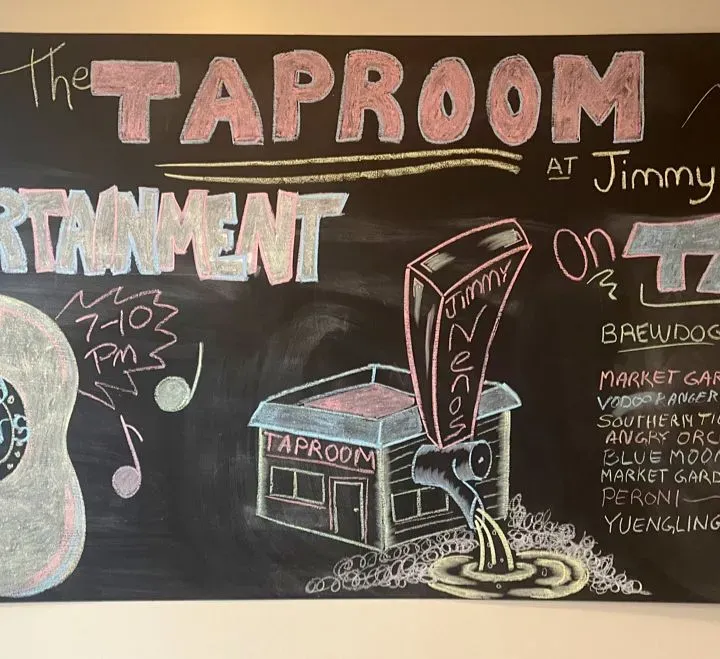 The TAPROOM
AT Jimmy
RTAINMENT
7-10
PM
Jimmy
Nenos
TAPROOM
On
BREWDOG
MARKET GAR
VODOO RANGER
SOUTHERN TI
ANGRY ORC
BLUE MOON
MARKET GARD
PERONI
YUENGLING